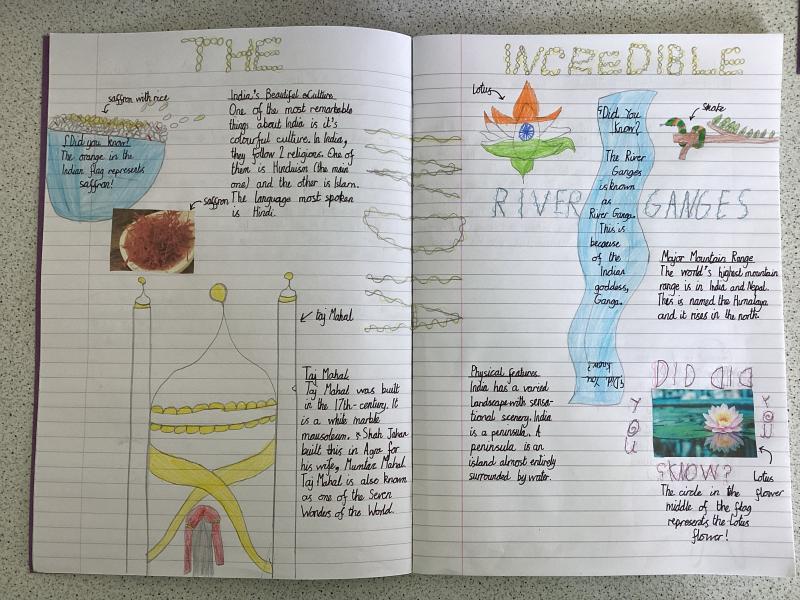 THE
saffron with rice
Did you know!
The orange in the
Indian flag represents
saffron!
saffron
India's Beautiful Culture
One of the most remarkable
things about India is it's
colourful culture. In India,
they follow 2 religions. One of
them is Hinduism (the main
one) and the other is Islam.
The language most spoken
is Hindi.
taj Mahal
Taj Mahal
Taj Mahal was built
in the 17th-century. It
is a white marble
mausoleum. Shah Jahan
built this in Agra for
his wife, Mumtaz Mahal.
Taj Mahal is also known
as one of the Seven
Wonders of the World.
INCREDIBLE
Lotus
Did You
Know?
The River
Ganges
is known
as
River Ganga.
This is
because
of the
Indian
goddess,
Ganga.
Did You
Know?
snake
RIVER GANGES
Major Mountain Range
The world's highest mountain
range is in India and Nepal.
This is named the Himalaya
and it rises in the north.
Physical features
India has a varied
landscape with sensa-
tional scenery. India
is a peninsula. A
peninsula is an
island almost entirely
surrounded by water.
DID DID
YOU
YOU
KNOW?
Lotus
flower
The circle in the
middle of the flag
represents the Lotus
flower!